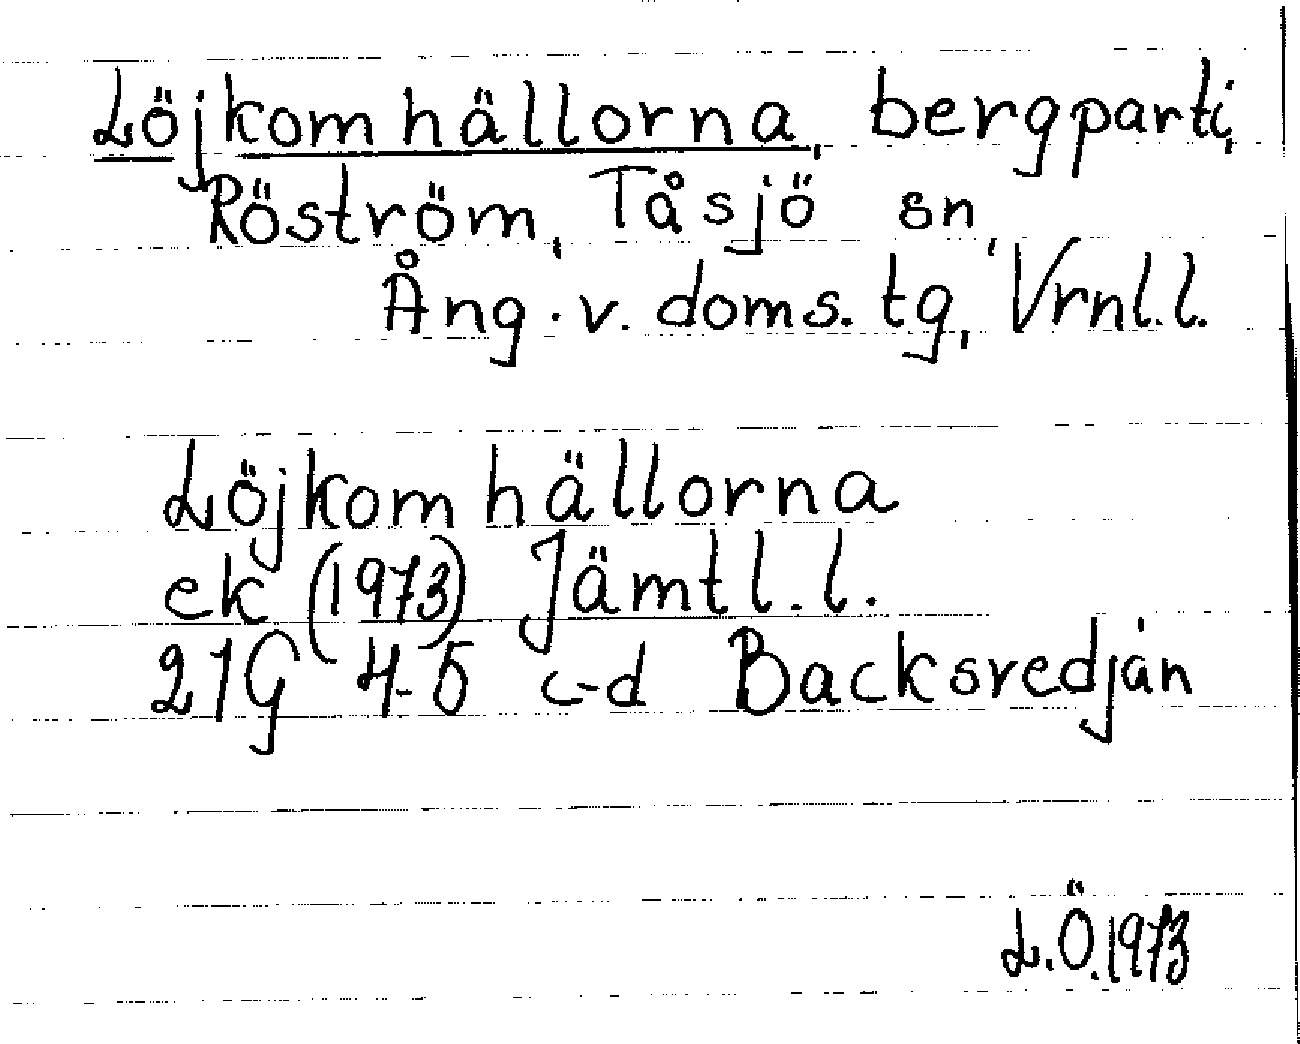 Löjkomhällorna, bergparti,
Röström, Tåsjö sn,
Ång. v. doms. tg, Vrnl.l.
Löjkomhällorna
ek (1973) Jämtl.l.
21G 4-5 c-d Backsredján
L.Ö.1973